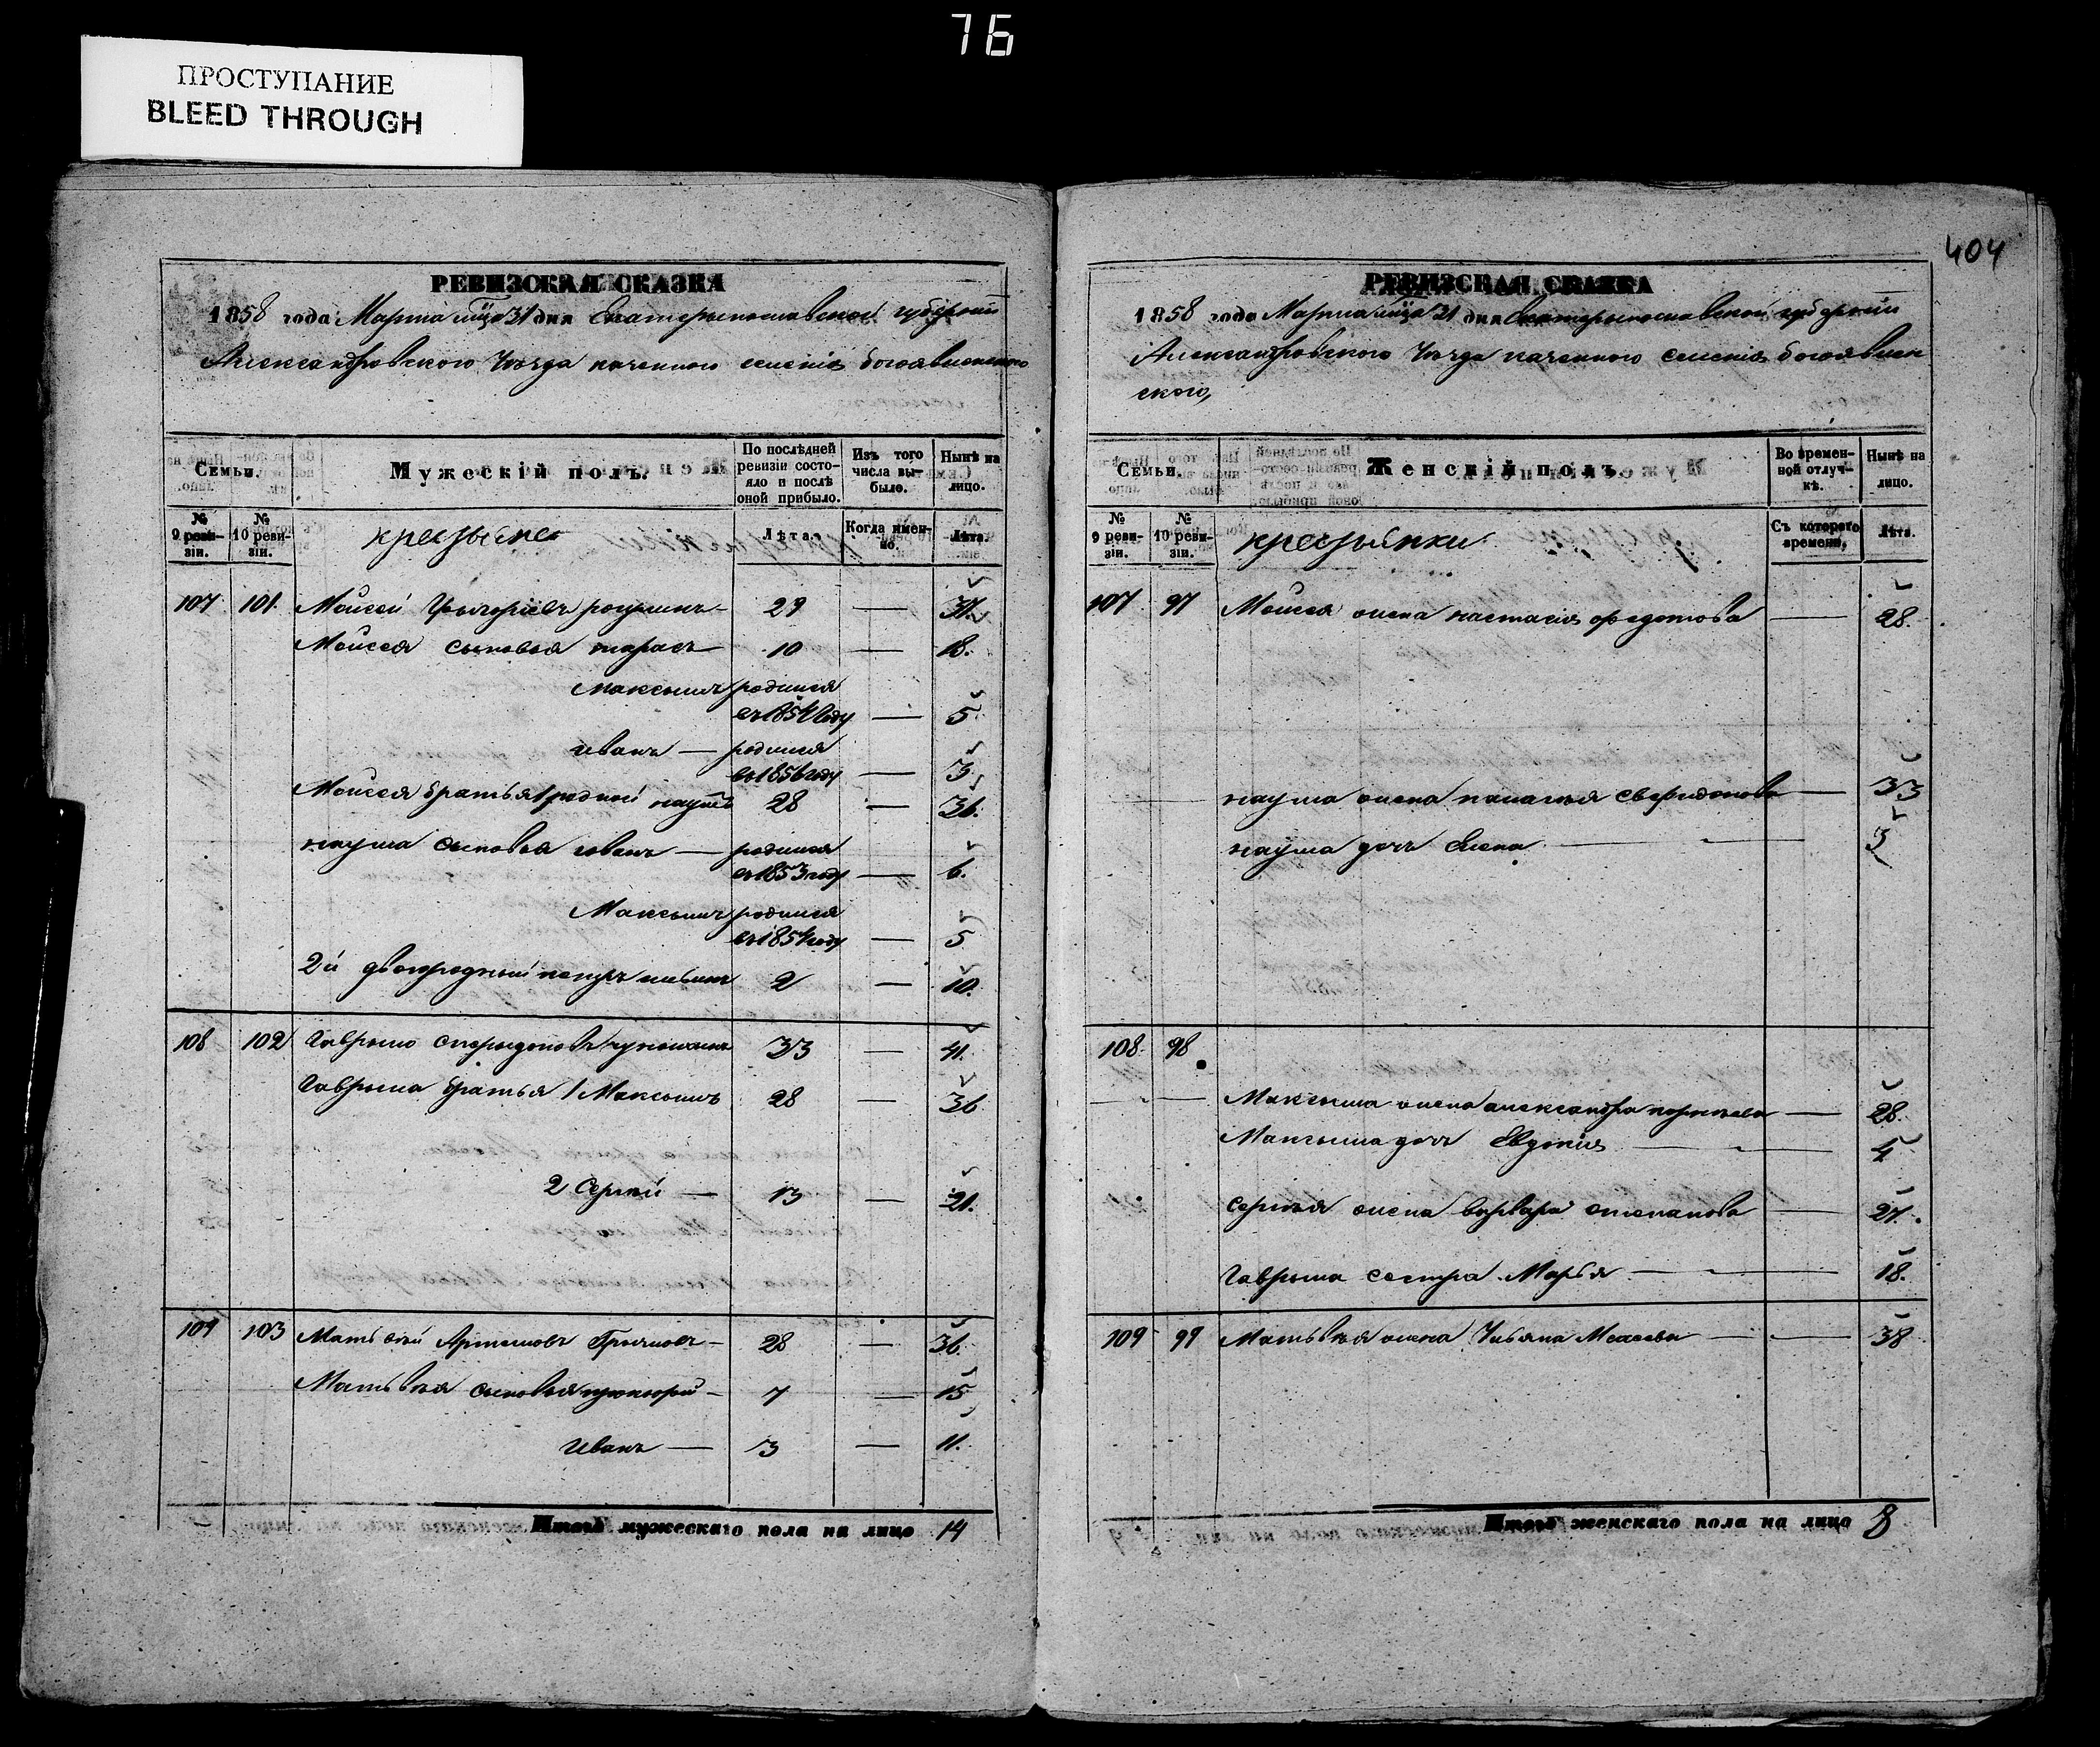 76
ПРОСТУПАНИЕ
BLEED THROUGH
РЕВИЗСКАЯ СКАЗКА
1858 года Марта мца 31 дня Екатеринославской губернии
Александровского уезда казенного селения богоявленского
Семьи.
Мужескій полъ.
По послѣдней ревизіи состояло и послѣ оной прибыло.
Изъ того числа выбыло.
Нынѣ на лицо.
№ 9 ревизіи.
№ 10 ревизіи.
Лѣта.
Когда именно.
Лѣта.
107 101. Моисей — 29 — 37.
Моисея сыновья тарасъ 10 — 18.
Максымъ родился
въ 1854 году — 5.
иванъ — родился
въ 1856 году — 3
Моисея братья 1 родной наумъ 28 — 36.
наума сыновья иванъ — родился
въ 1853 году — 6.
Максымъ родился
въ 1854 году — 5
2й двоюродный петръ 2 — 10.
108 102 Гаврыло 33 — 41.
Гаврыла братья 1 Максымъ 28 — 36
2 Сергий — 13 — 21.
109 103 Матвѣй Артемовъ — 28 — 36.
Матвѣя сыновья григорий — 7 — 15
Иванъ — 3 — 11.
Итогъ мужескаго пола на лицо 14
404
РЕВИЗСКАЯ СКАЗКА
1858 года Марта мца 31 дня Екатеринославской губернии
Александровского уезда казенного селения богоявлен
ского,
Семьи.
Женскій полъ.
Во временной отлучкѣ.
Нынѣ на лицо.
№ 9 ревизіи.
№ 10 ревизіи.
Съ которого времени.
Лѣта.
107 97 Моисея жена настасия федотова — 28.
наума жена палагея сверидонова — 33
наума дочь Елена — 3
108 98
Максыма жена александра корнеева — 28.
Максыма дочь Евдокия — 4
Сергея жена варвара степанова — 27.
Гаврыла сестра Марья — 18.
109 99 Матвѣя жена Ульяна Моисеева — 38
Итогъ женскаго пола на лицо 8